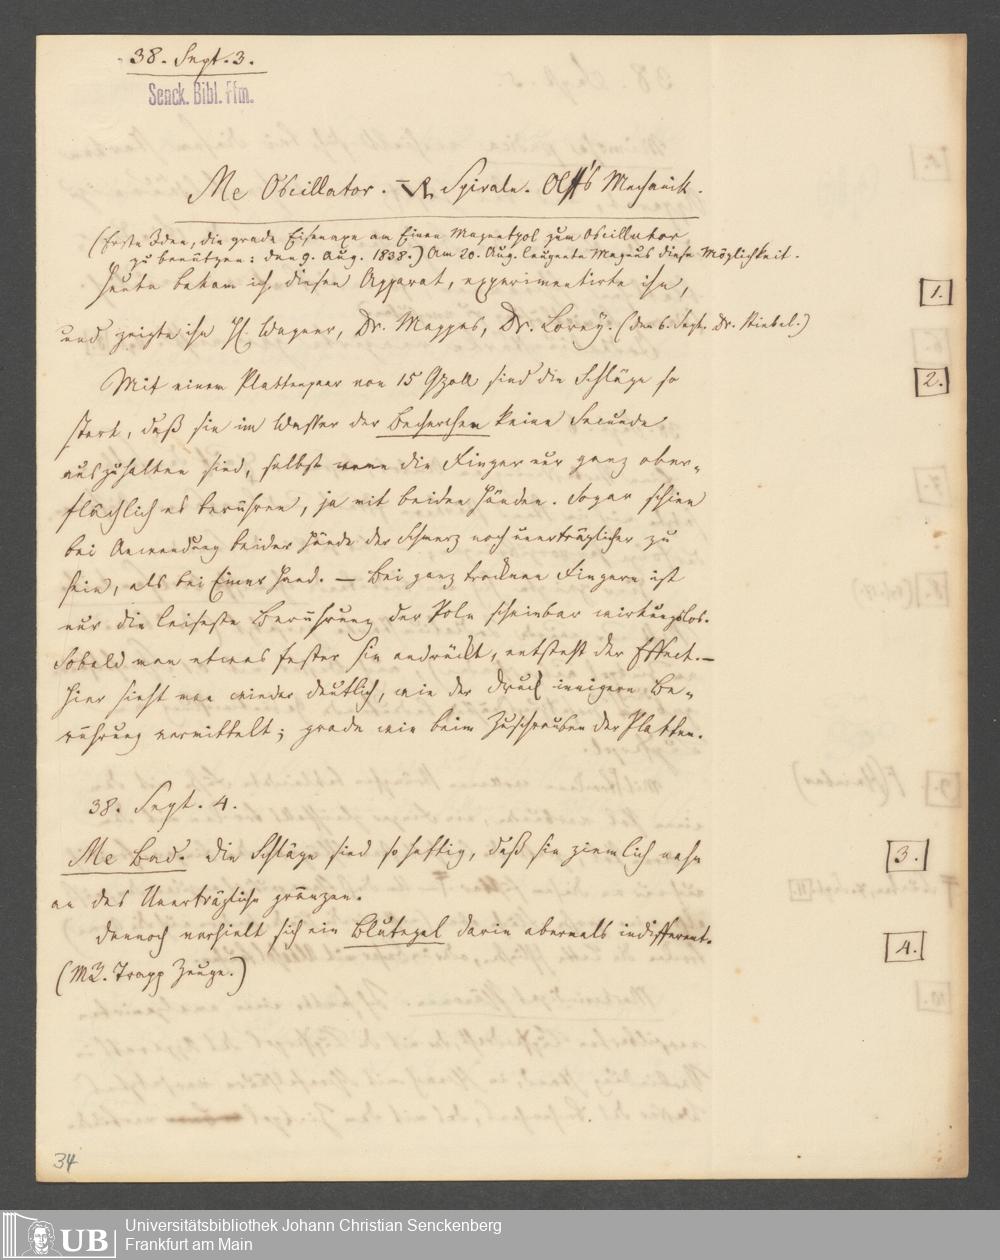 38. Sept. 3.
Senck. Bibl. Ffm.
Me Oscillator. Spirale. Mechanik.
(Erste Idee, die grade Eisenaxe an Einen Magnetpol zum Oscillator
zu benützen: den 9. Aug. 1838.) Am 20. Aug. leugnete Magnus diese Möglichkeit.
Heute bekam ich diesen Apparat, experimentirte ihn,
1.
und zeigte ihn H. Wagner, Dr. Mappes, Dr. Lorey. (den 6. Sept. Dr. Stiebel.)
Mit einem Plattenpaar von 15 Qzoll sind die Schläge so
2.
stark, daß sie im Wasser der Becherchen keine Secunde
auszuhalten sind, selbst wenn die Finger nur ganz ober-
flächlich es berühren, ja mit beiden Händen. Sogar schien
bei Anwendung beider Hände der Schmerz noch unerträglicher zu
sein, als bei Einer Hand. — Bei ganz trocknen Fingern ist
nur die leiseste Berührung der Pole scheinbar wirkungslos.
Sobald man etwas fester sie andrückt, entsteht der Effect. —
Hier sieht man wieder deutlich, wie der Druck innigere Be-
rührung vermittelt; grade wie beim Zuschrauben der Platten.
38. Sept. 4.
Me Bad. die Schläge sind so heftig, daß sie ziemlich nahe
3.
an das Unerträgliche gränzen.
dennoch verhielt sich ein Blutegel darin abermals indifferent.
4.
(Trapp Zeuge.)
34
UB
Universitätsbibliothek Johann Christian Senckenberg
Frankfurt am Main